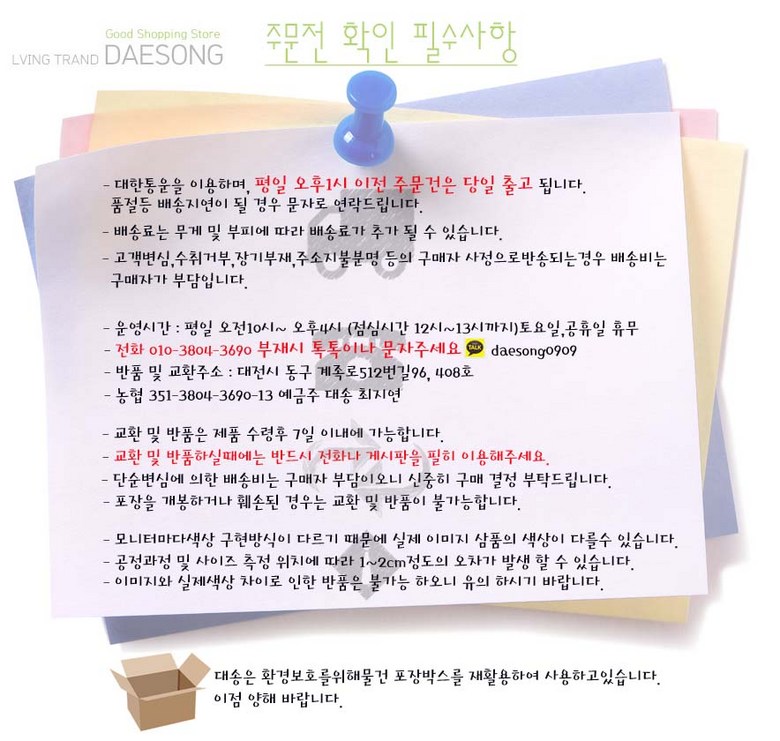 Good Shopping Store
LVING TRAND DAESONG
주문전 확인 필수사항
- 대한통운을 이용하며, 평일 오후1시 이전 주문건은 당일 출고 됩니다.
품절등 배송지연이 될 경우 문자로 연락드립니다.
- 배송료는 무게 및 부피에 따라 배송료가 추가 될 수 있습니다.
- 고객변심,수취거부,장기부재,주소지불분명 등의 구매자 사정으로반송되는경우 배송비는
구매자가 부담입니다.
- 운영시간 : 평일 오전10시~ 오후4시 (점심시간 12시~13시까지)토요일,공휴일 휴무
- 전화 010-3804-3690 부재시 톡톡이나 문자주세요 TALK daesong0909
- 반품 및 교환주소 : 대전시 동구 계족로512번길96, 408호
- 농협 351-3804-3690-13 예금주 대송 최지연
- 교환 및 반품은 제품 수령후 7일 이내에 가능합니다.
- 교환 및 반품하실때에는 반드시 전화나 게시판을 필히 이용해주세요.
- 단순변심에 의한 배송비는 구매자 부담이오니 신중히 구매 결정 부탁드립니다.
- 포장을 개봉하거나 훼손된 경우는 교환 및 반품이 불가능합니다.
- 모니터마다색상 구현방식이 다르기 때문에 실제 이미지 삼품의 색상이 다를수 있습니다.
- 공정과정 및 사이즈 측정 위치에 따라 1~2cm정도의 오차가 발생 할 수 있습니다.
- 이미지와 실제색상 차이로 인한 반품은 불가능 하오니 유의 하시기 바랍니다.
대송은 환경보호를위해물건 포장박스를 재활용하여 사용하고있습니다.
이점 양해 바랍니다.